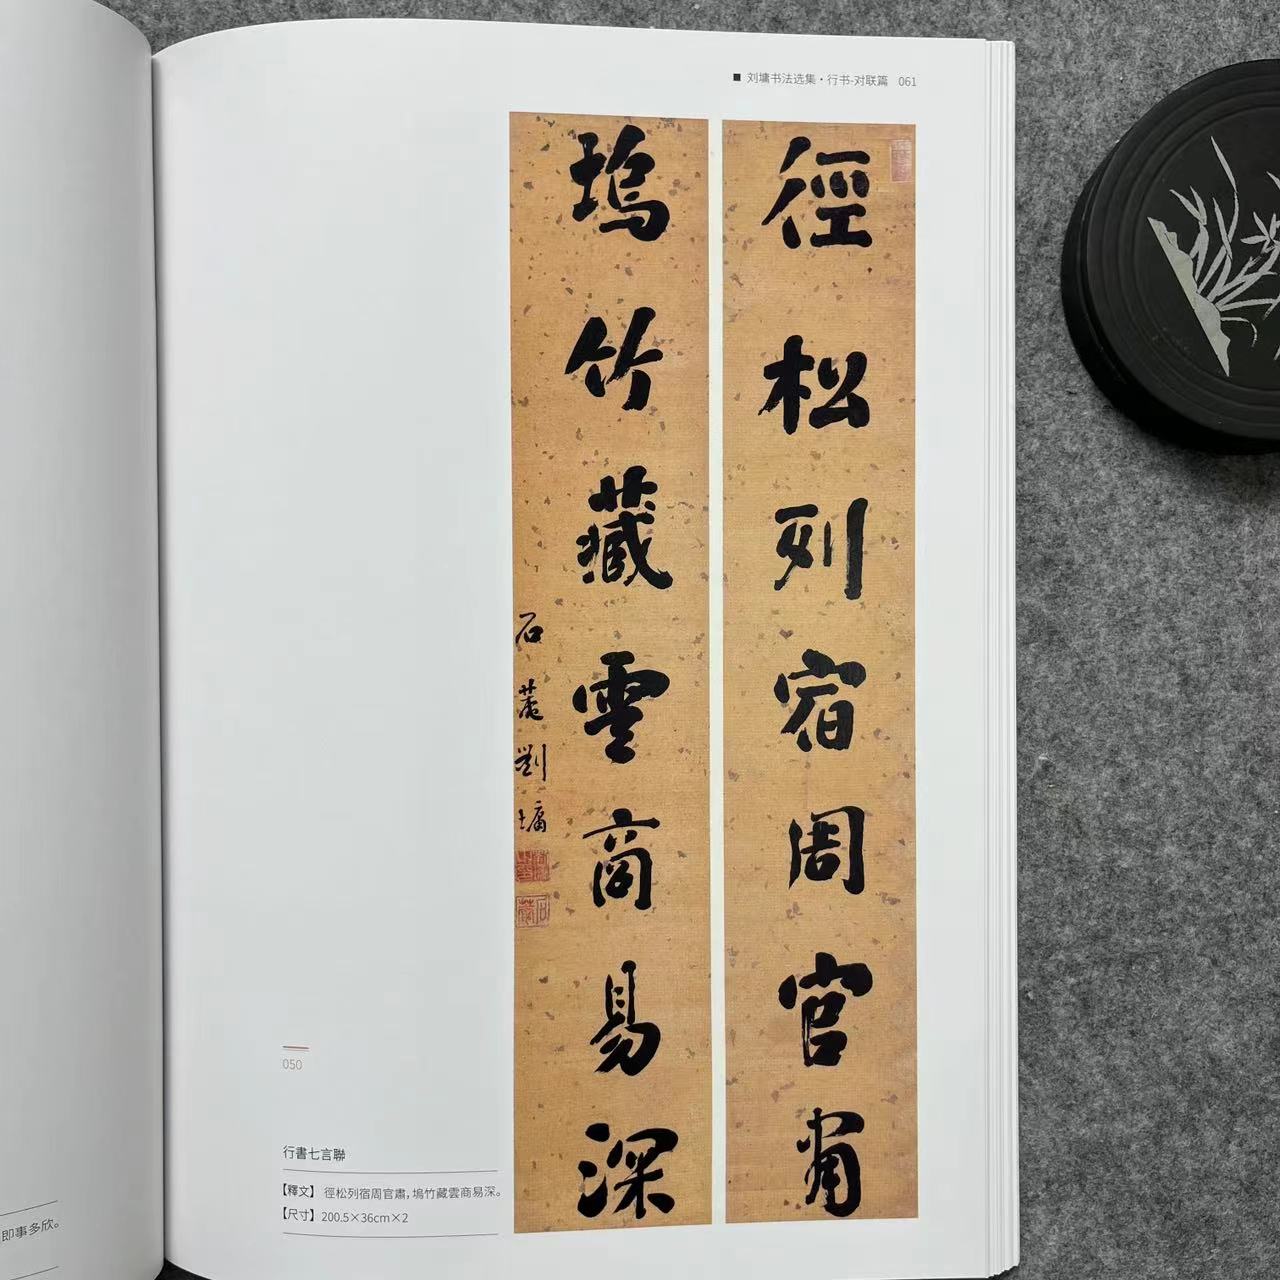 ■ 刘墉书法选集·行书-对联篇 061
徑松列宿周官肅
塢竹藏雲商易深
石菴劉墉
050
行書七言聯
【釋文】 徑松列宿周官肅，塢竹藏雲商易深。
【尺寸】 200.5×36cm×2
即事多欣。